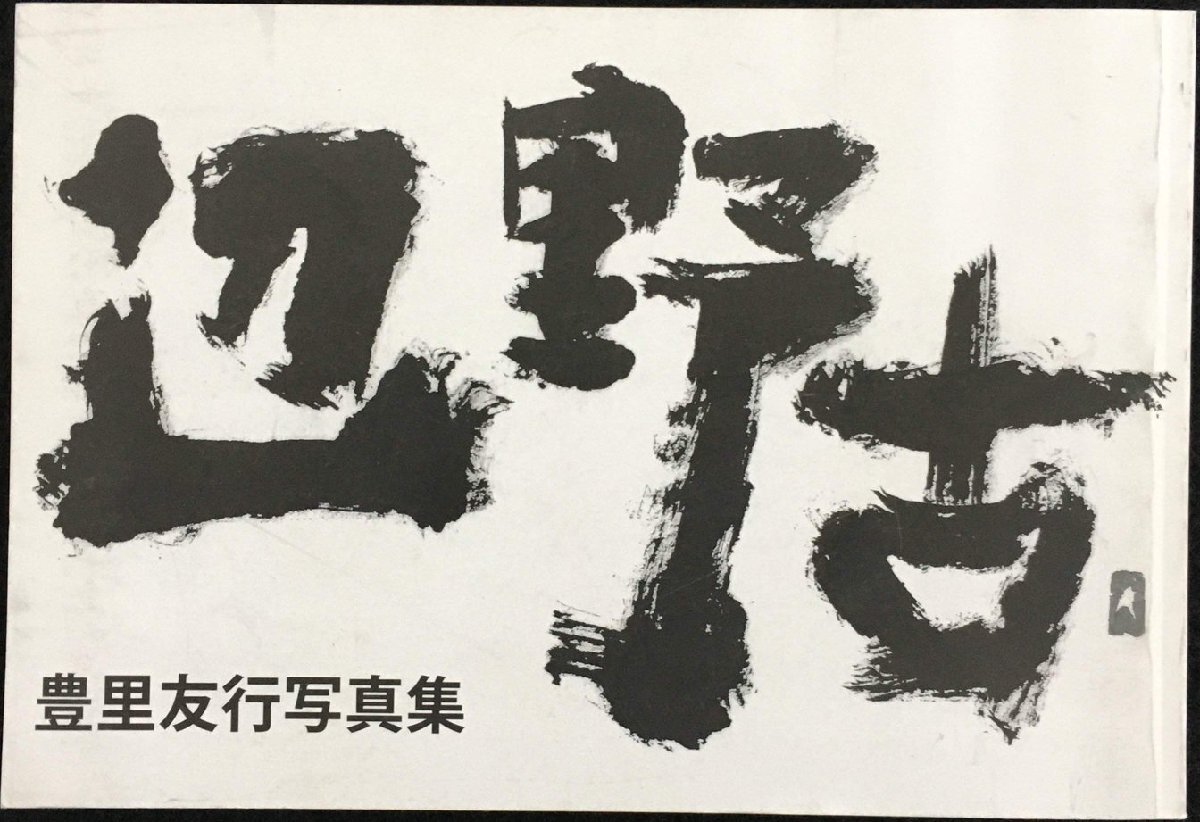 辺野古
豊里友行写真集